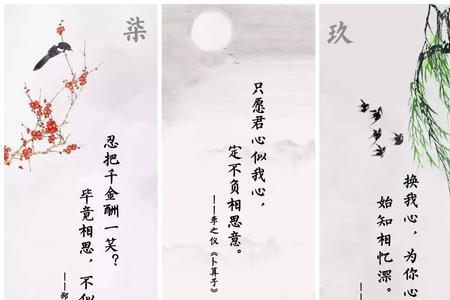 柒
忍把千金酬一笑？
毕竟相思，不似
只愿君心似我心，
定不负相思意。
——李之仪《卜算子》
玖
换我心，为你心
始知相忆深。